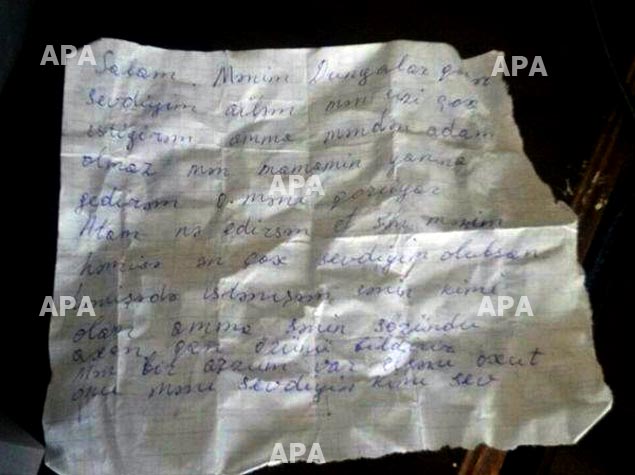 APA
APA
Salam. Mənim Dunyalar qədər
sevdiyim ailəm mən sizi çox
istiyirəm amma məndən adam
olmaz mən mamamın yanına
APA
gedirəm o məni gözləyir
Atam nə edirsən et sən mənim
həmişə ən çox sevdiyim olubsan
həmişədə istəmişəm sənin kimi
APA
APA
olam amma sənin sözündə
özünü
mən bir arzum var oxut
onu məni sevdiyin kimi sev
APA